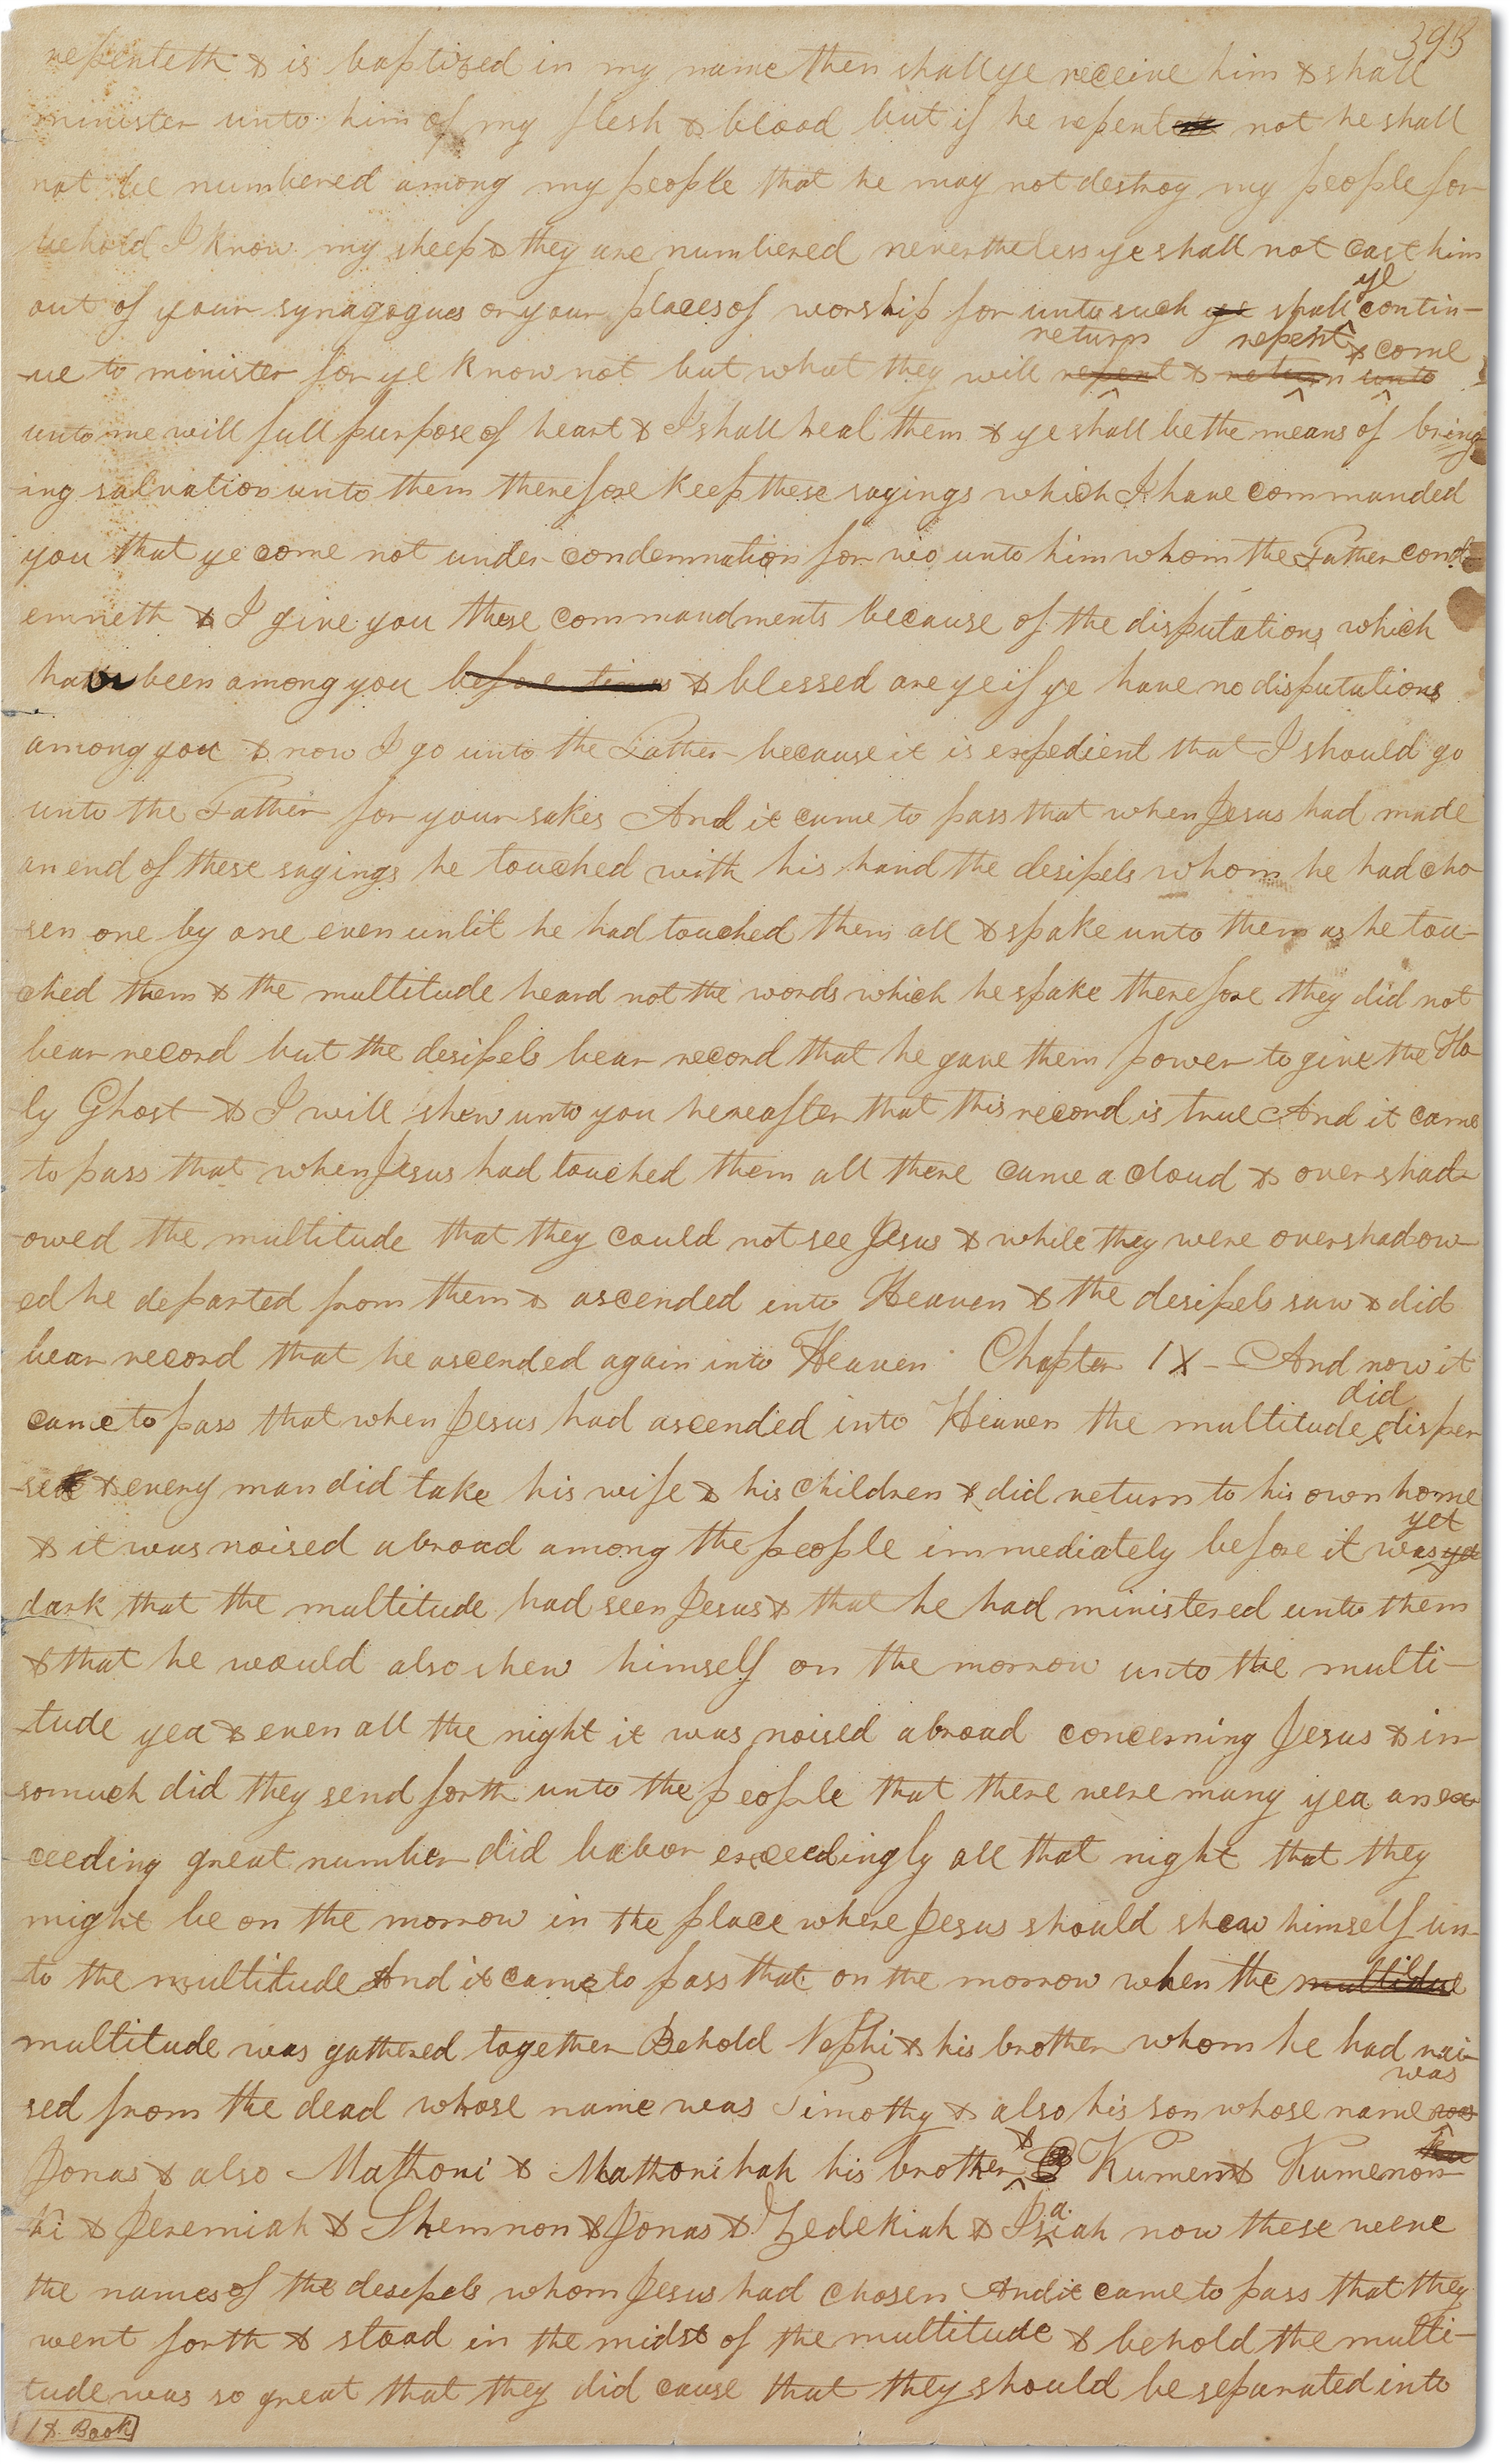 393
repenteth & is baptized in my name then shall ye receive him & shall
minister unto him of my flesh & blood but if he repent not he shall
not be numbered among my people that he may not destroy my people for
behold I know my sheep & they are numbered nevertheless ye shall not cast him
ye
out of your synagogues or your places of worship for unto such ye shall contin-
return repent & come
-ue to minister for ye know not but what they will repent & return unto
unto me will full purpose of heart & I shall heal them & ye shall be the means of bring
-ing salvation unto them therefore keep these sayings which I have commanded
you that ye come not under condemnation for wo unto him whom the Father cond-
emneth & I give you these commandments because of the disputations which
have been among you before times & blessed are ye if ye have no disputations
among you & now I go unto the Father because it is expedient that I should go
unto the Father for your sakes And it came to pass that when Jesus had made
an end of these sayings he touched with his hand the desipels whom he had cho
-sen one by one even untit he had touched them all & spake unto them as he tou-
-ched them & the multitude heard not the words which he spake therefore they did not
bear record but the desipels bear record that he gave them power to give the Ho-
ly Ghost & I will shew unto you hereafter that this record is true And it came
to pass that when Jesus had touched them all there came a cloud & over shad-
-owed the multitude that they could not see Jesus & while they were overshadow-
-ed he departed from them & ascended into Heaven & the desipels saw & did
bear record that he ascended again into Heaven Chapter IX- And now it
did
came to pass that when Jesus had ascended into Heaven the multitude disper
-sed & every man did take his wife & his children & did return to his own home
yet
& it was noised abroad among the people immediately before it was yet
dark that the multitude had seen Jesus & that he had ministered unto them
& that he would also shew himself on the morrow unto the multi-
-tude yea & even all the night it was noised abroad concerning Jesus & in-
-somuch did they send forth unto the people that there were many yea an ex
-ceeding great number did labor exceedingly all that night that they
might be on the morrow in the place where Jesus should shew himself un-
-to the multitude And it came to pass that on the morrow when the multitude
multitude was gathered together Behold Nephi & his brother whom he had rai-
was
sed from the dead whose name was Timothy & also his son whose name was
&
Jonas & also Mathoni & Mathonihah his brother Kumen & Kumenon-
a
-hi & Jeremiah & Shemnon & Jonas & Zedekiah & Isiah now these were
the names of the desipels whom Jesus had chosen And it came to pass that they
went forth & stood in the midst of the multitude & behold the multi-
tude was so great that they did cause that they should be separated into
1st Book